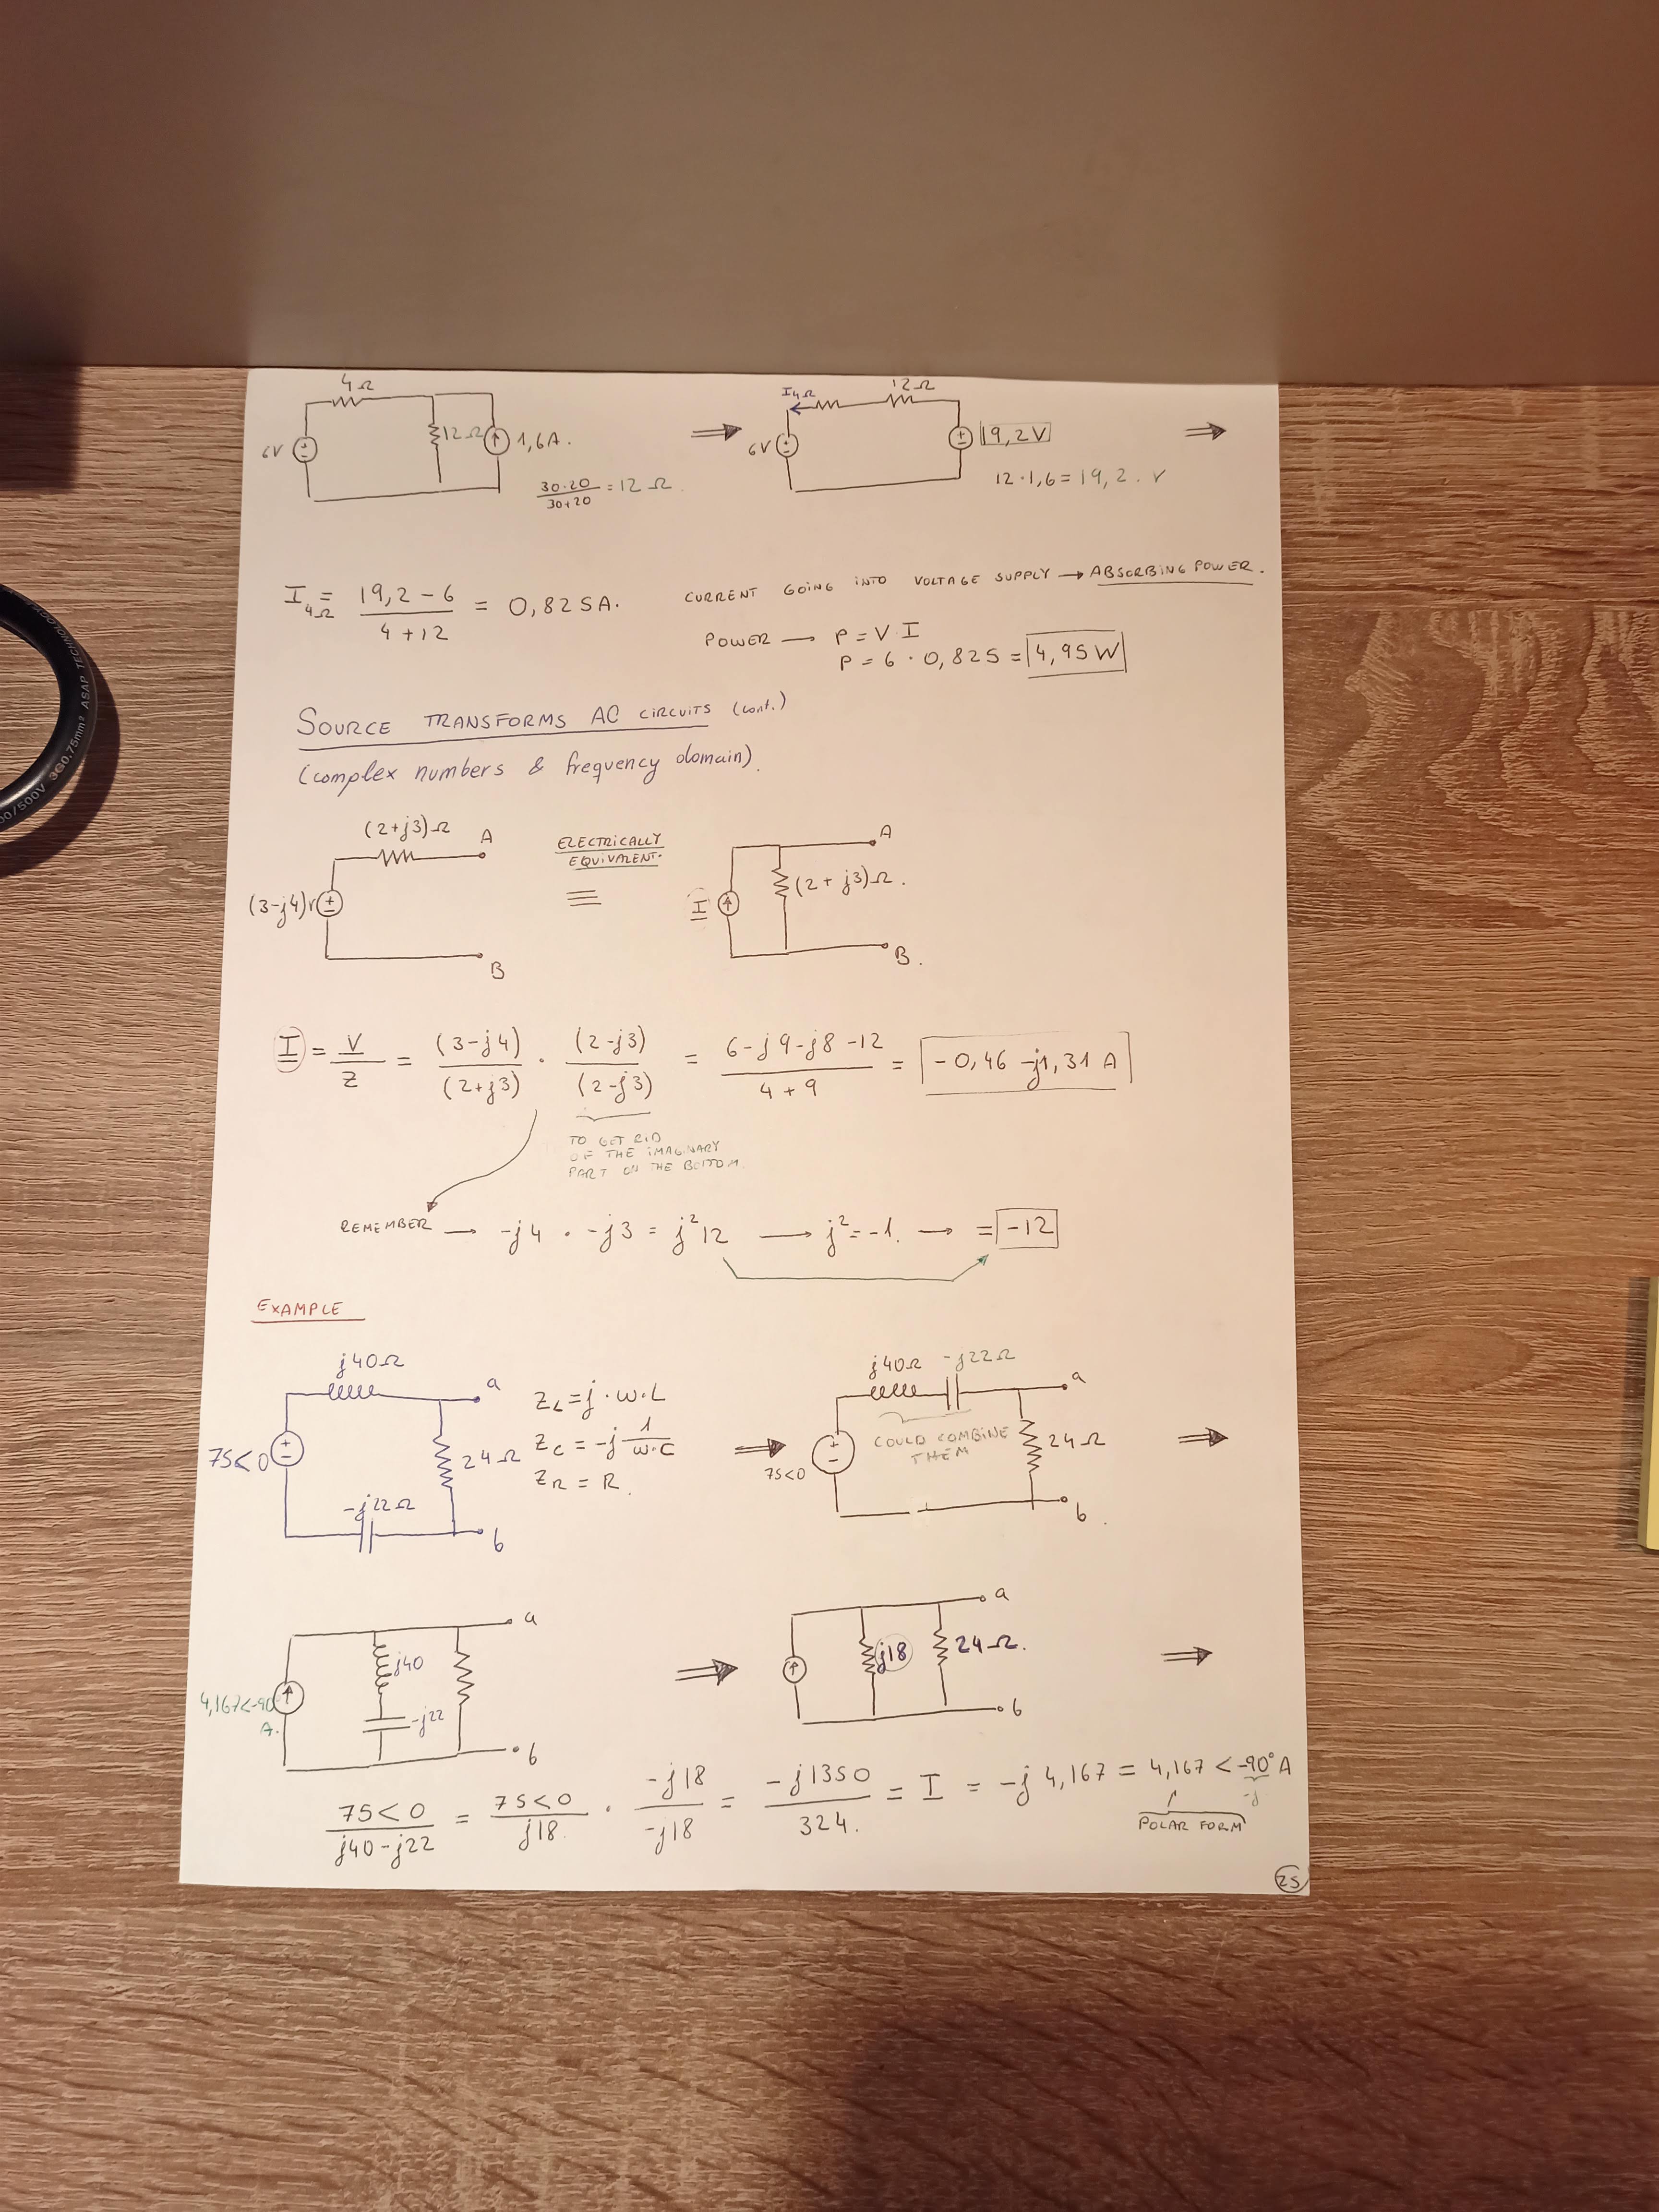 4Ω
6V
12Ω
1,6A.
30·20
30+20
=12Ω.
I4Ω
12Ω
6V
19,2V
12·1,6=19,2.V
I4Ω = 19,2-6 = 0,825A.
4+12
CURRENT GOING INTO VOLTAGE SUPPLY → ABSORBING POWER.
POWER → P=V·I
P=6·0,825=4,95W
SOURCE TRANSFORMS AC CIRCUITS (cont.)
(complex numbers & frequency domain).
(2+j3)Ω
A
(3-j4)V
B
ELECTRICALLY
EQUIVALENT.
≡
A
I
(2+j3)Ω.
B.
I = V = (3-j4) · (2-j3) = 6-j9-j8-12 = -0,46-j1,31 A
Z (2+j3) (2-j3) 4+9
TO GET RID
OF THE IMAGINARY
PART ON THE BOTTOM.
REMEMBER → -j4 · -j3 = j²12 → j²=-1. → = -12
EXAMPLE
j40Ω
a
75<0
24Ω
-j22Ω
b
ZL=j·ω·L
ZC=-j 1
ω·C
ZR=R.
j40Ω -j22Ω
a
COULD COMBINE
THEM
24Ω
75<0
b.
a
j40
4,167<-90
A.
-j22
b
a
j18
24Ω.
b
75<0 = 75<0 · -j18 = -j1350 = I = -j4,167 = 4,167<-90° A
j40-j22 j18. -j18 324.
-j
POLAR FORM
25
3G0,75mm² ASAP TECH
00/500V